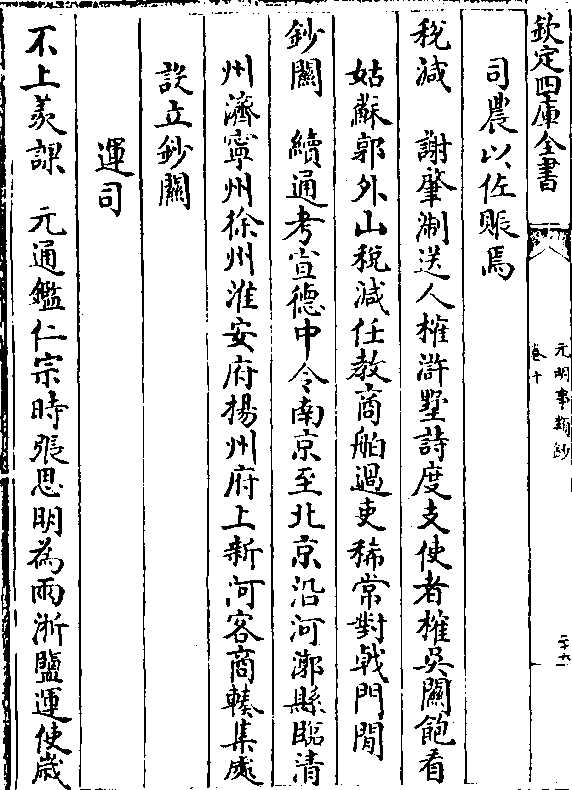 欽定四庫全書
元明事類鈔
卷十
司農以佐賑焉
稅減　謝肇淛送人榷滸墅詩度支使者榷吳關飽看
姑蘇郭外山稅減任教商舶過吏稀常對㦸門閒
鈔關　續通考宣德中令南京至北京沿河漷縣臨清
州濟寧州徐州淮安府揚州府上新河客商輳集處
設立鈔關
運司
不上羡課　元通鑑仁宗時張思明為兩浙鹽運使歲